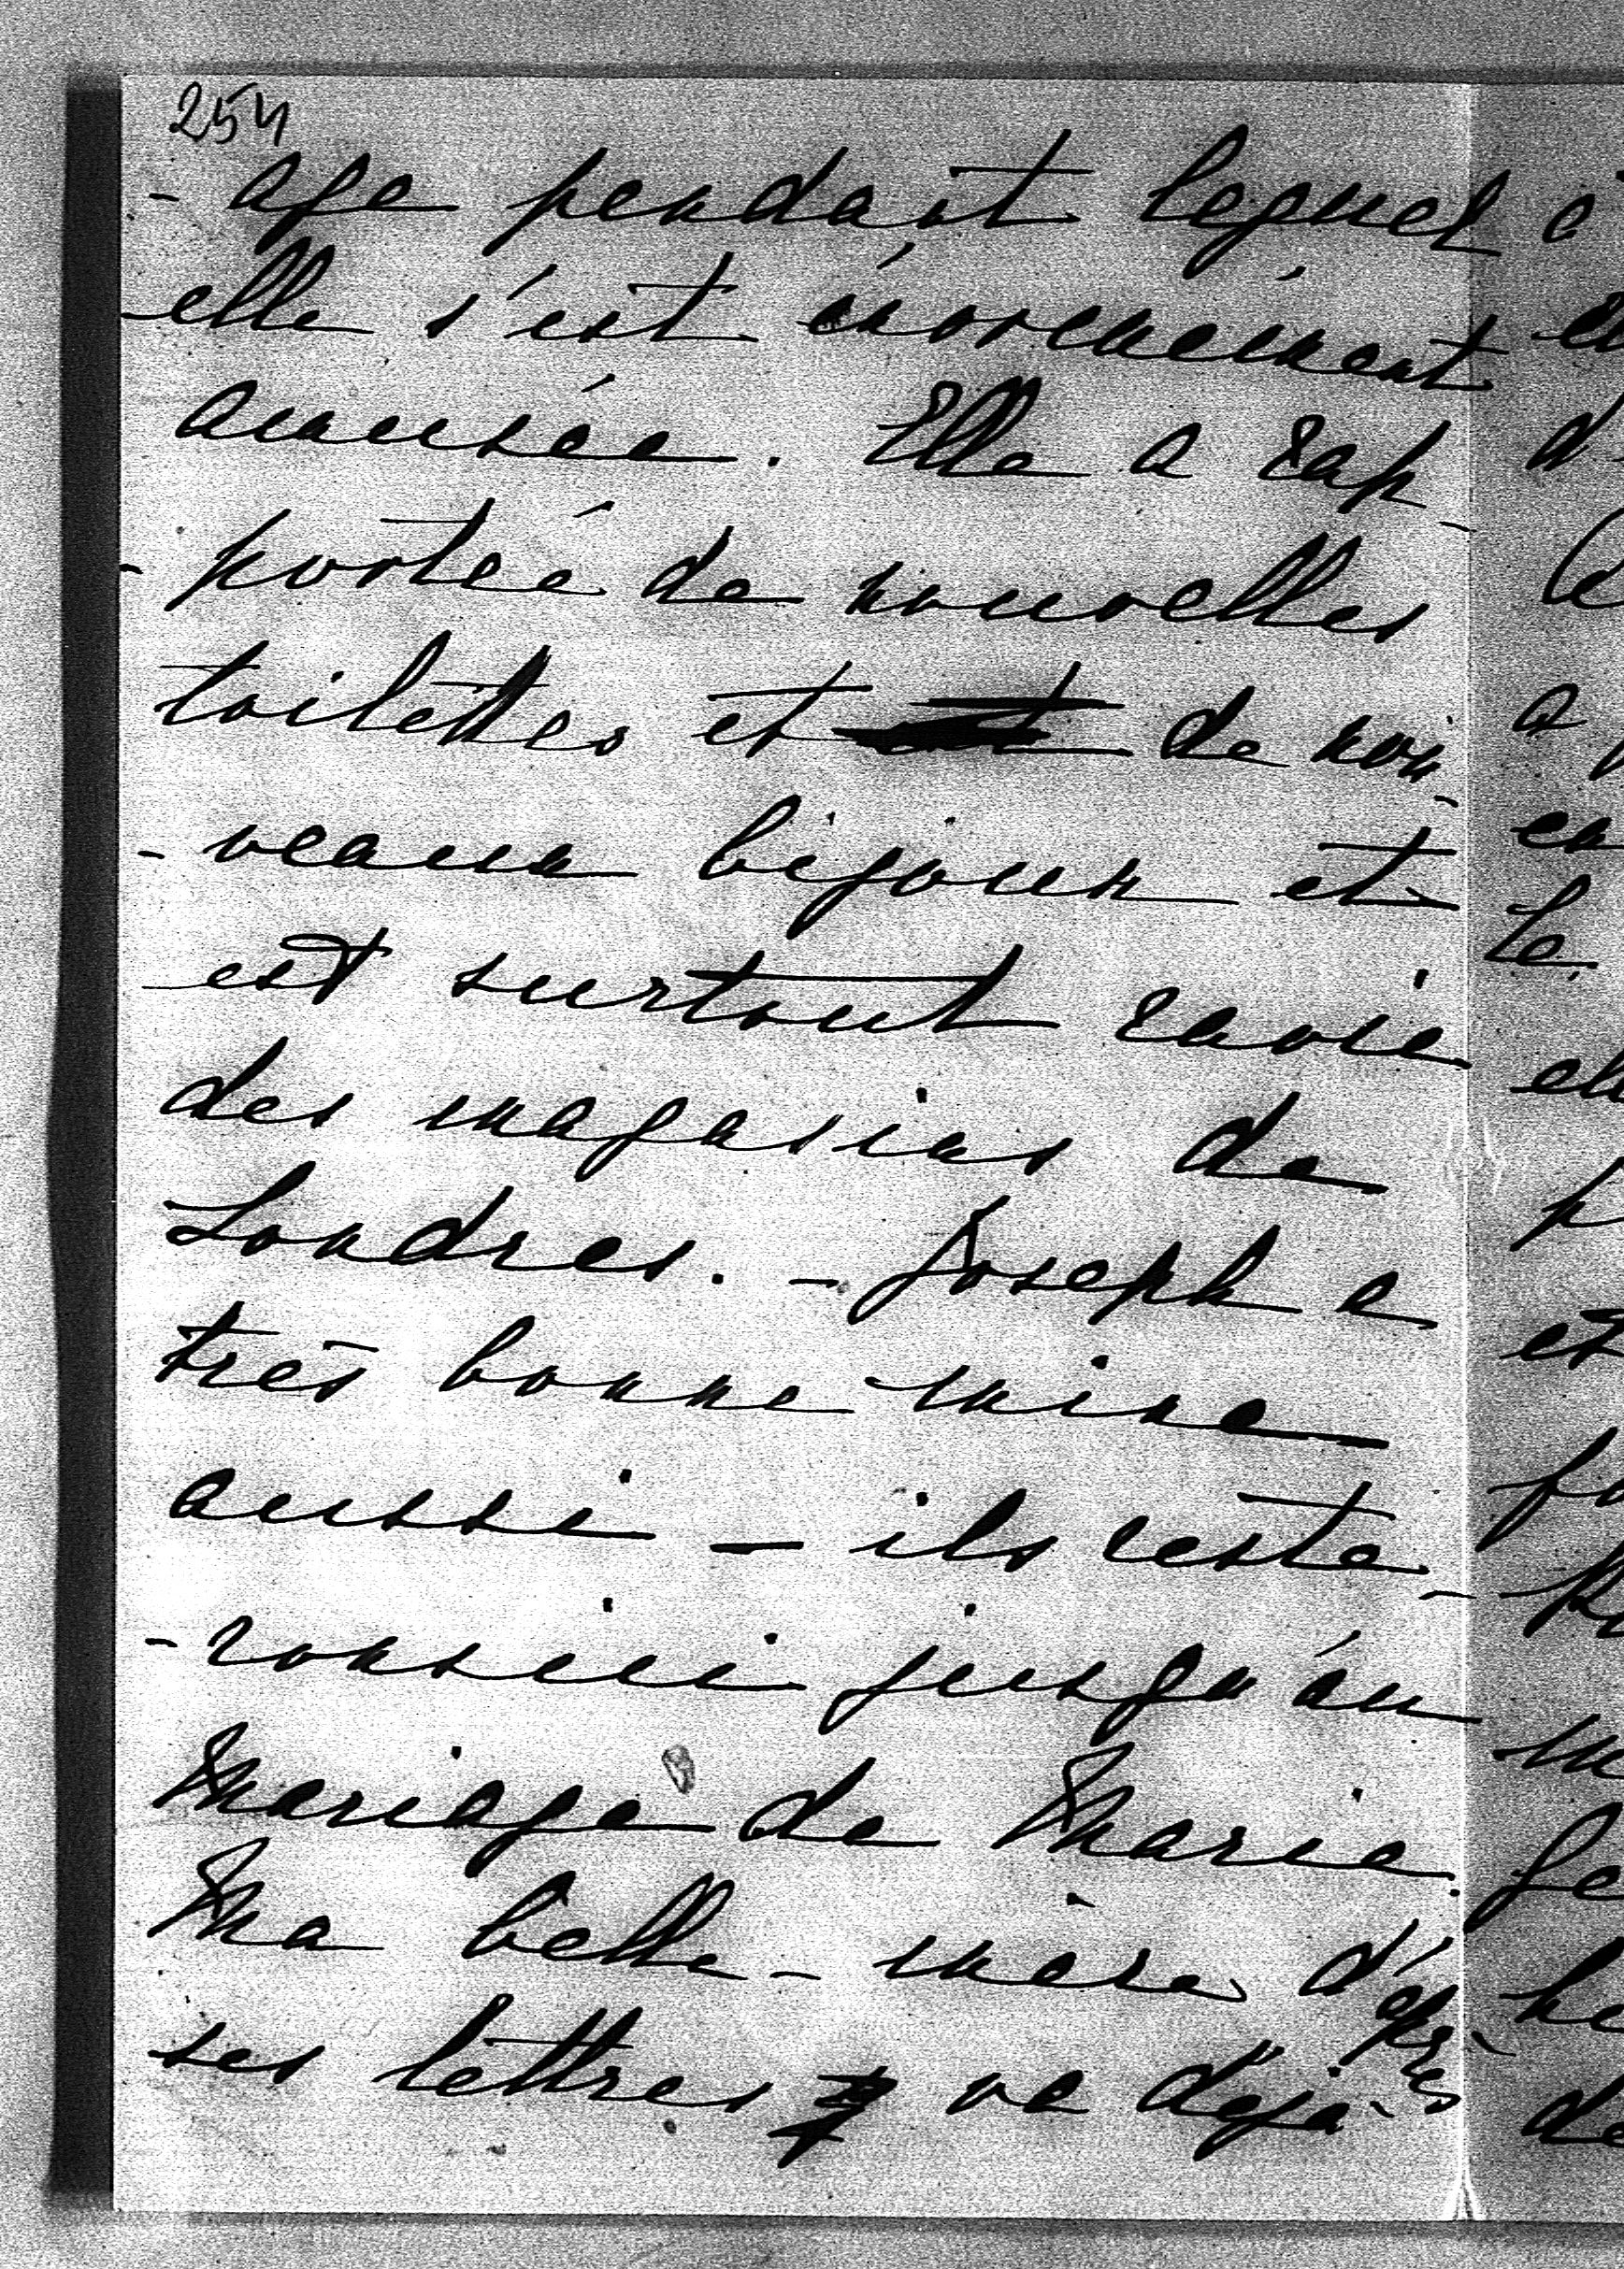 254
- age pendant lequel
elle s'est énormément
amusée. Elle a rap-
- portée de nouvelles
toilettes et de nou-
- veaux bijoux et
est surtout ravie
des magasins de
Londres. - Joseph a
très bonne mine
aussi — ils reste-
- ront ici jusqu'au
mariage de Marie.
Ma belle-mère, d'après
ses lettres va déjà